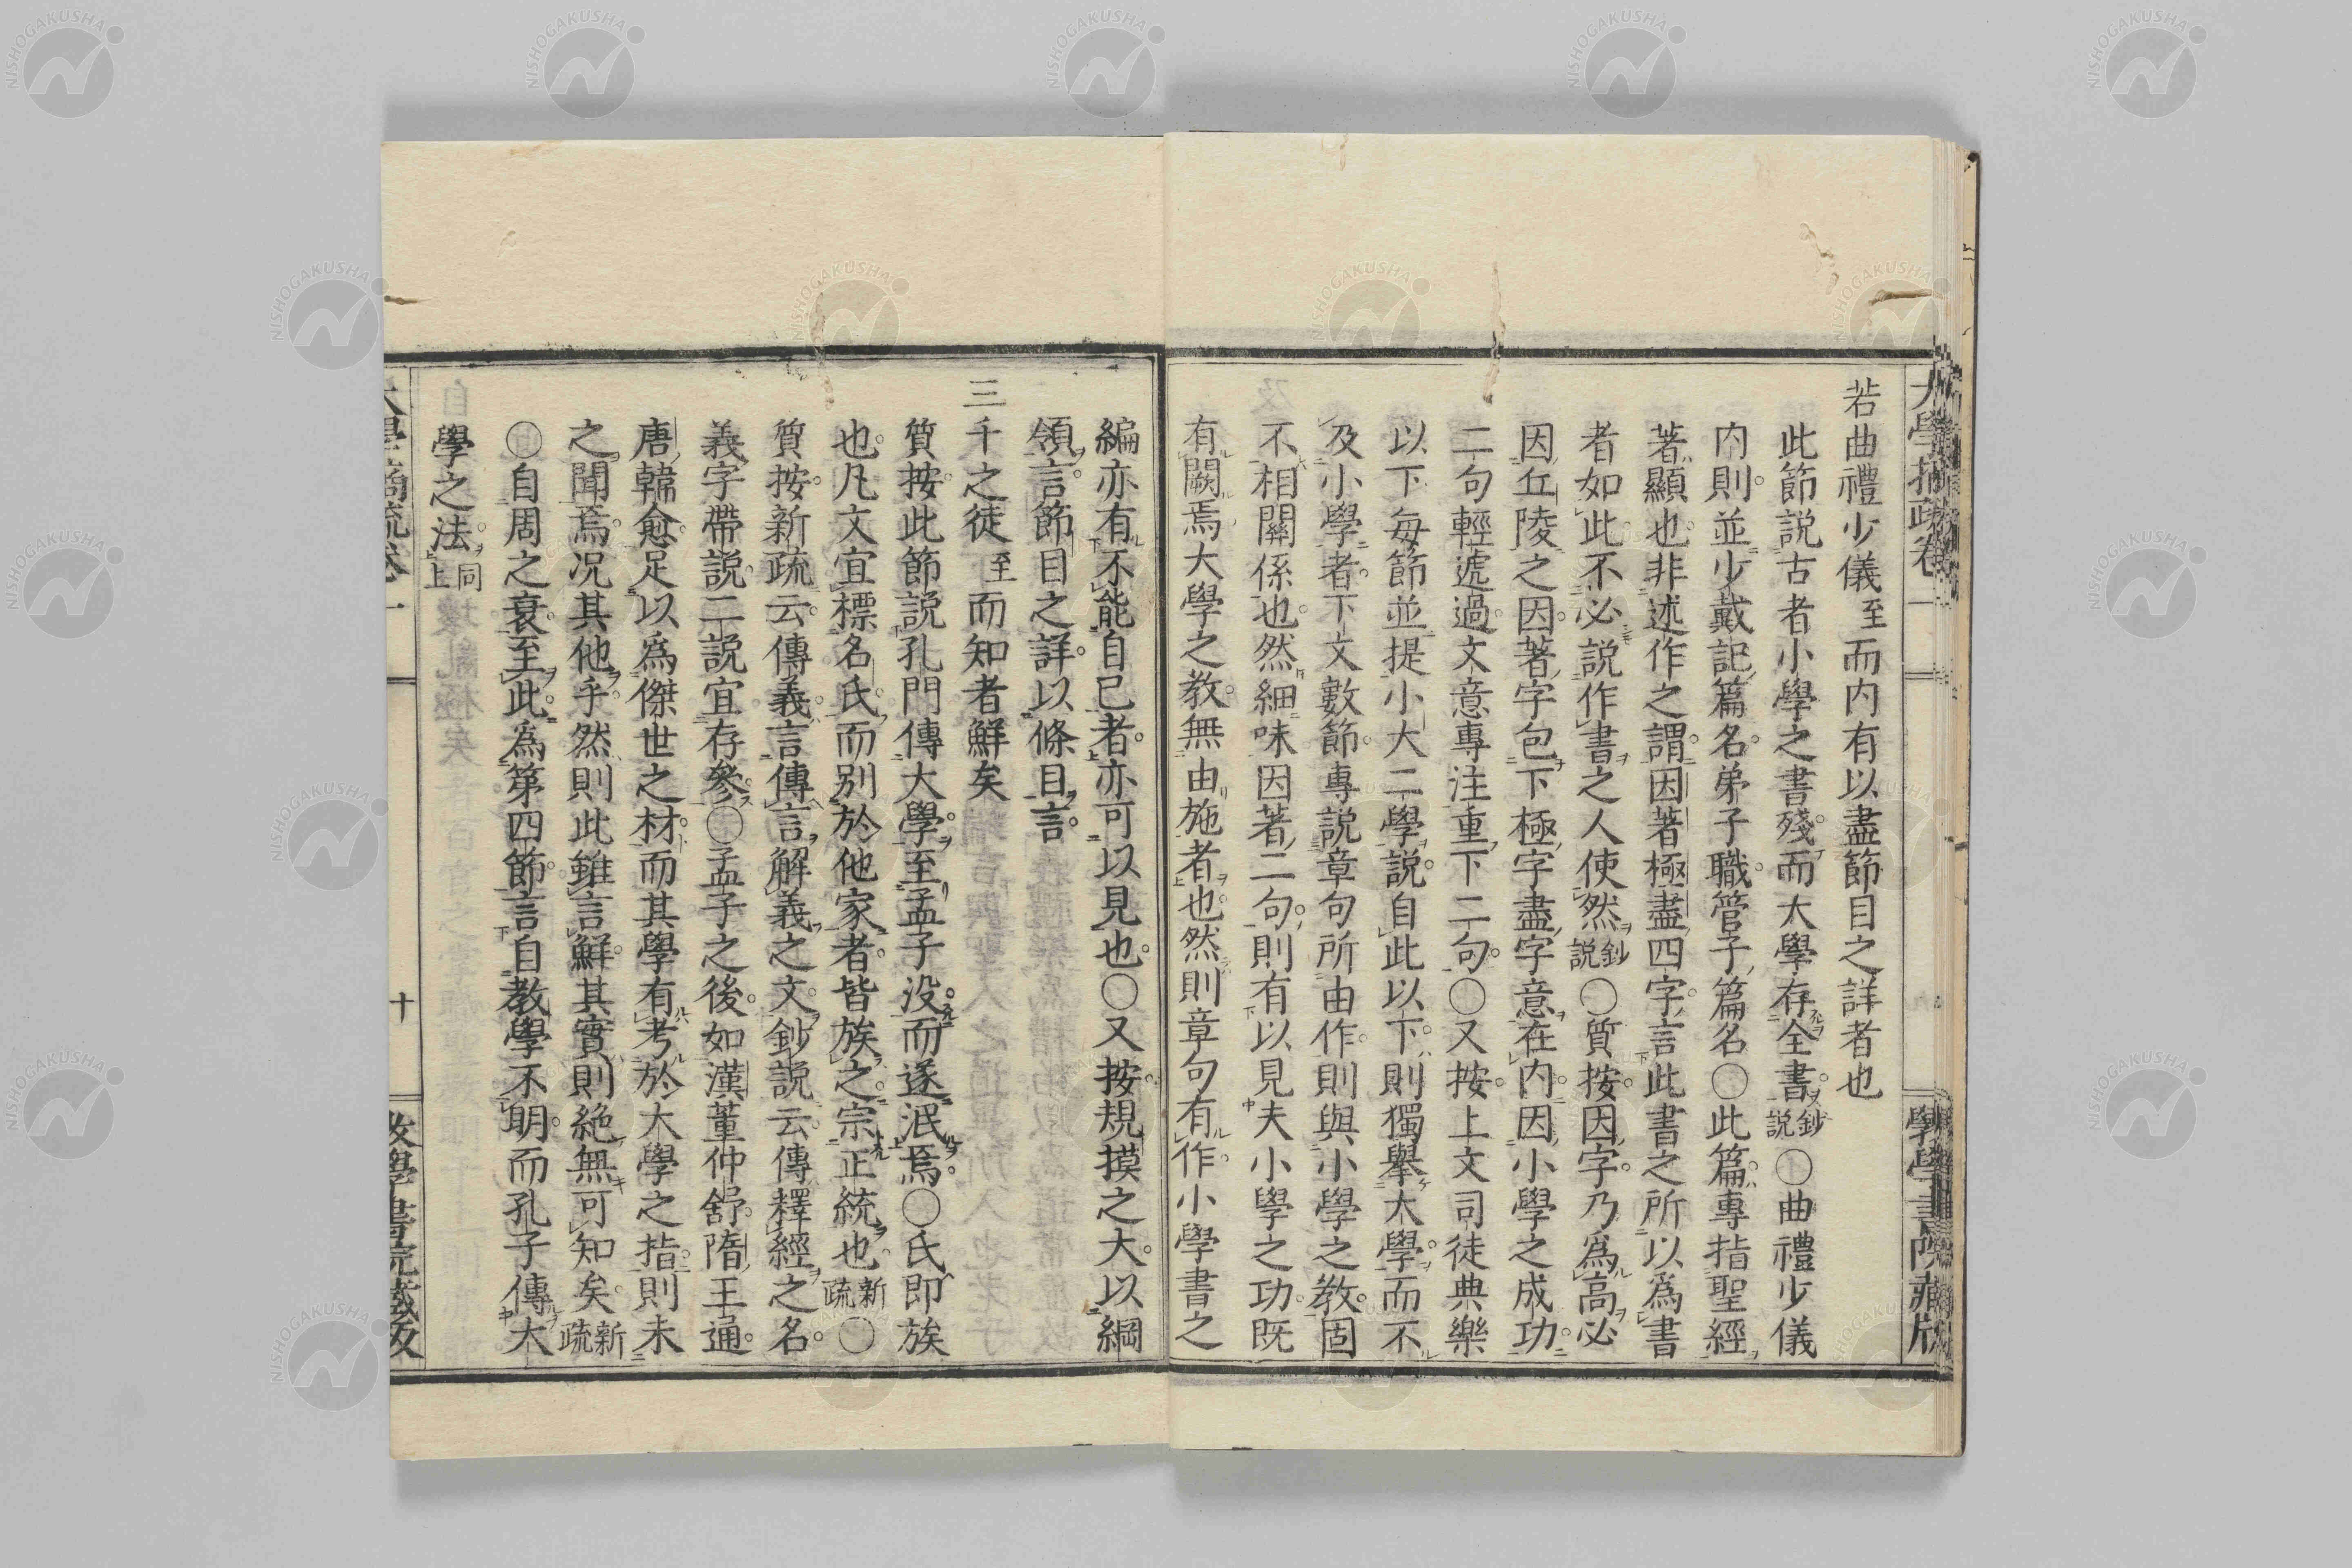 若曲禮少儀至而内有以盡節目之詳者也
此節説古者小學之書殘而大學存全書鈔説〇曲禮少儀
内則並少戴記篇名弟子職管子篇名〇此篇專指聖經
著顯也非述作之謂因著極盡四字言此書之所以為書
者如此不必説作書之人使然鈔説〇質按因字乃為高必
因丘陵之因著字包下極字盡字意在内因小學之成功
二句輕遞過文意專注重下二句〇又按上文司徒典樂
以下每節並提小大二學説自此以下則獨擧大學而不
及小學者下文數節專説章句所由作則與小學之教固
不相關係也然細味因著二句則有以見夫小學之功既
有闕焉大學之教無由施者也然則章句有作小學書之
編亦有不能自已者亦可以見也〇又按規摸之大以綱
領言節目之詳以條目言
三千之徒至而知者鮮矣
質按此節説孔門傳大學至孟子没而遂泯焉〇氏即族
也凡文宜標名氏而别於他家者皆族之宗正統也新疏〇
質按新疏云傳義言傳言解義之文鈔説云傳釋經之名
義字帶説二説宜存參〇孟子之後如漢董仲舒隋王通
唐韓愈足以為傑世之材而其學有考於大學之指則未
之聞焉况其他乎然則此雖言鮮其實則絶無可知矣新疏
〇自周之衰至此為第四節言自教學不明而孔子傳大
學之法同上
十